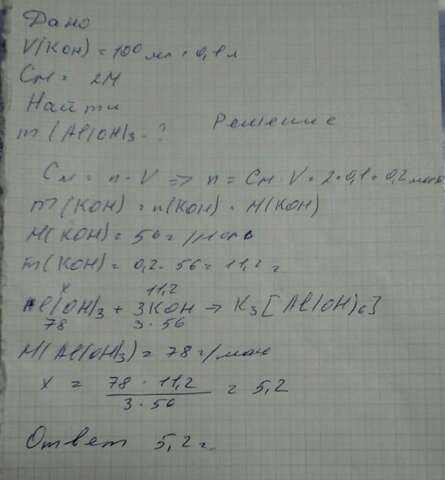 Дано
V(KOH) = 100 мл = 0,1 л
См = 2М
Найти
m(Al(OH)3 - ?
Решение
См = n · V => n = См · V = 2 · 0,1 = 0,2 моль
m(KOH) = n(KOH) · M(KOH)
M(KOH) = 56 г/моль
m(KOH) = 0,2 · 56 = 11,2 г
x 11,2
Al(OH)3 + 3KOH → K3[Al(OH)6]
78 3·56
M(Al(OH)3) = 78 г/моль
x = 78 · 11,2 / 3·56 = 5,2
Ответ 5,2 г.